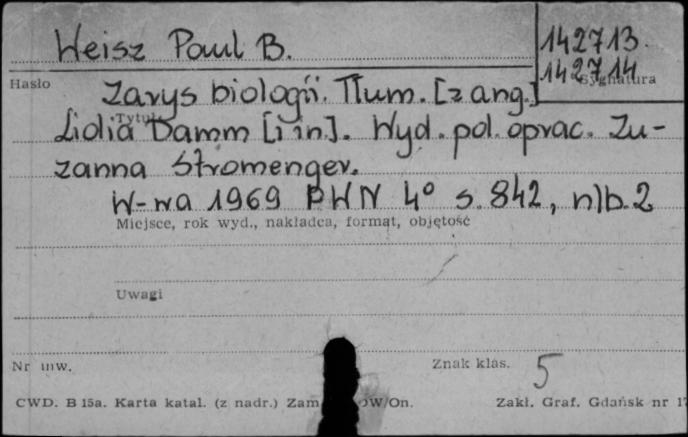 Weisz Paul B.
142713.
142714
Hasło
Sygnatura
Zarys biologii. Tłum. [z ang.]
Tytuł
Lidia Damm [i in]. Wyd. pol. oprac. Zu-
zanna Stromenger.
W-wa 1969 PWN 4° s. 842, nlb. 2
Miejsce, rok wyd., nakładca, format, objętość
Uwagi
Nr inw.
Znak klas. 5
CWD. B 15a. Karta katal. (z nadr.) Zam. OW/On.
Zakł. Graf. Gdańsk nr 17